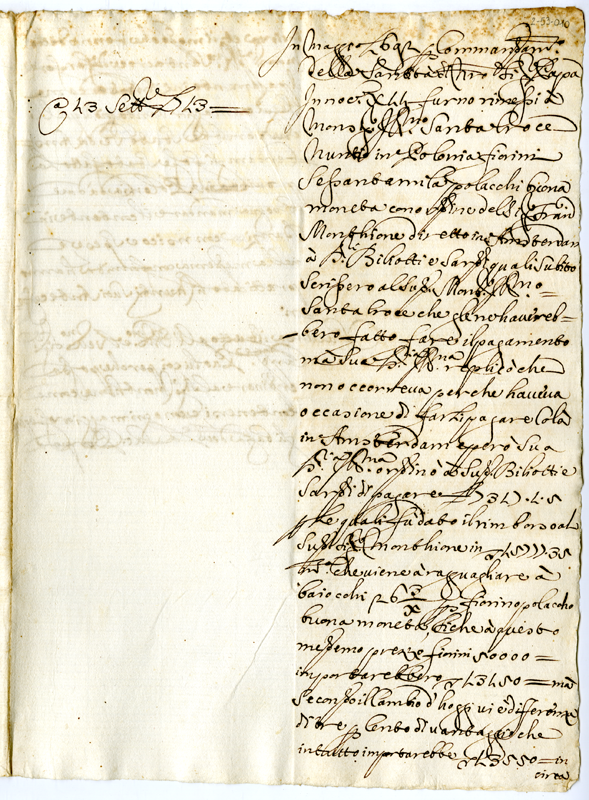 2-53-010
In Maggio 1692 p Commandam.to
della Santità di Nro Sig. Papa
Innoc. XII furno rimessi à
Mons. Ill.mo Santa Croce
Nuntio in Polonia fiorini
Sessantamila polacchi buona
moneta con ordine delli Gran
Monthione diretto in Amsterdam
à S.ri Biliotti e Sardi quali subito
Scrissero al Sud.o Mons. Ill.mo
Santa Croce che gliene havereb-
bero fatto fare il pagamento
mà Sua S. Ill.ma replicò che
non occorreva perche haveva
occasione di farli pagare Colà
in Amsterdam e però Sua
S. Ill.ma ordinò à Sud.i Biliotti e
Sardi di pagare
p le quali fù dato il rimborso al
Sud.o Monthione in
che viene à ragguagliare à
baiocchi 26 p fiorino polaccho
buona moneta, siche à questo
medemo prezzo fiorini 50000 =
importarebbero 13150 = mà
Secondo il Cambio d'hoggi vi è differenza
di tre p Cento di vantaggio che
in tutto importarebbe 13550 = in
circa
A 13 Sett.e 13 =